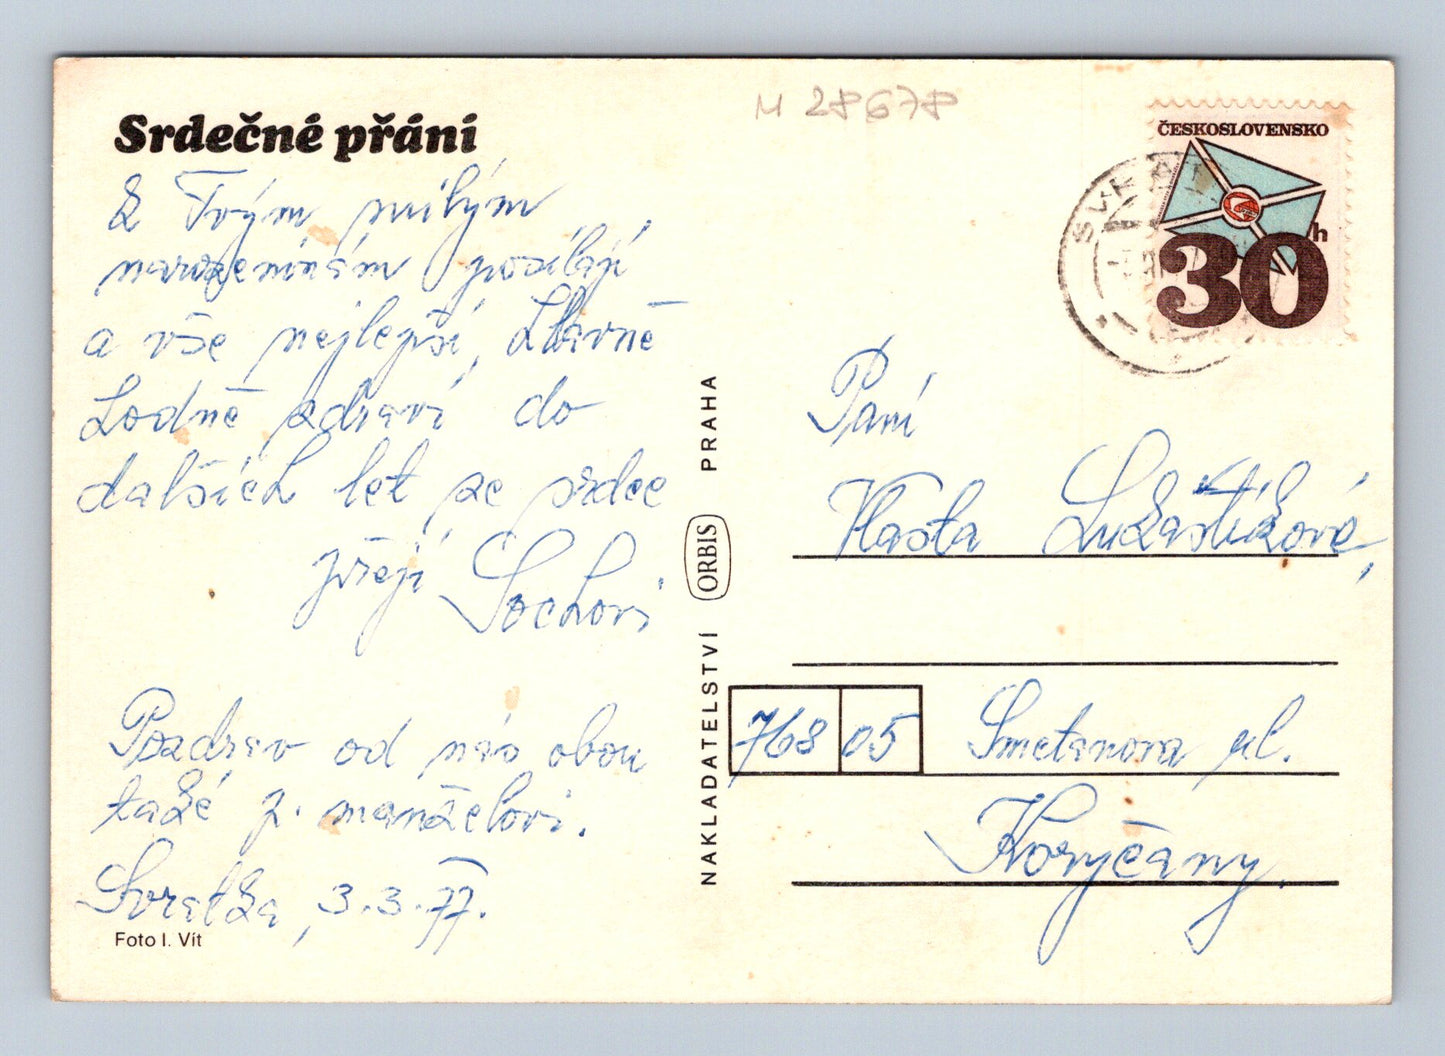 Srdečné přání
K Tvým milým
narozeninám posílají
a vše nejlepší, hlavně
hodně zdraví do
dalších let ze srdce
přejí Sochovi
Pozdrav od nás obou
také p. manželovi.
Svratka, 3.3.77.
Foto I. Vít
NAKLADATELSTVÍ ORBIS PRAHA
M 28678
ČESKOSLOVENSKO
30h
Paní
Vlasta Lukaštíková
768 05 Smetanova ul.
Koryčany.